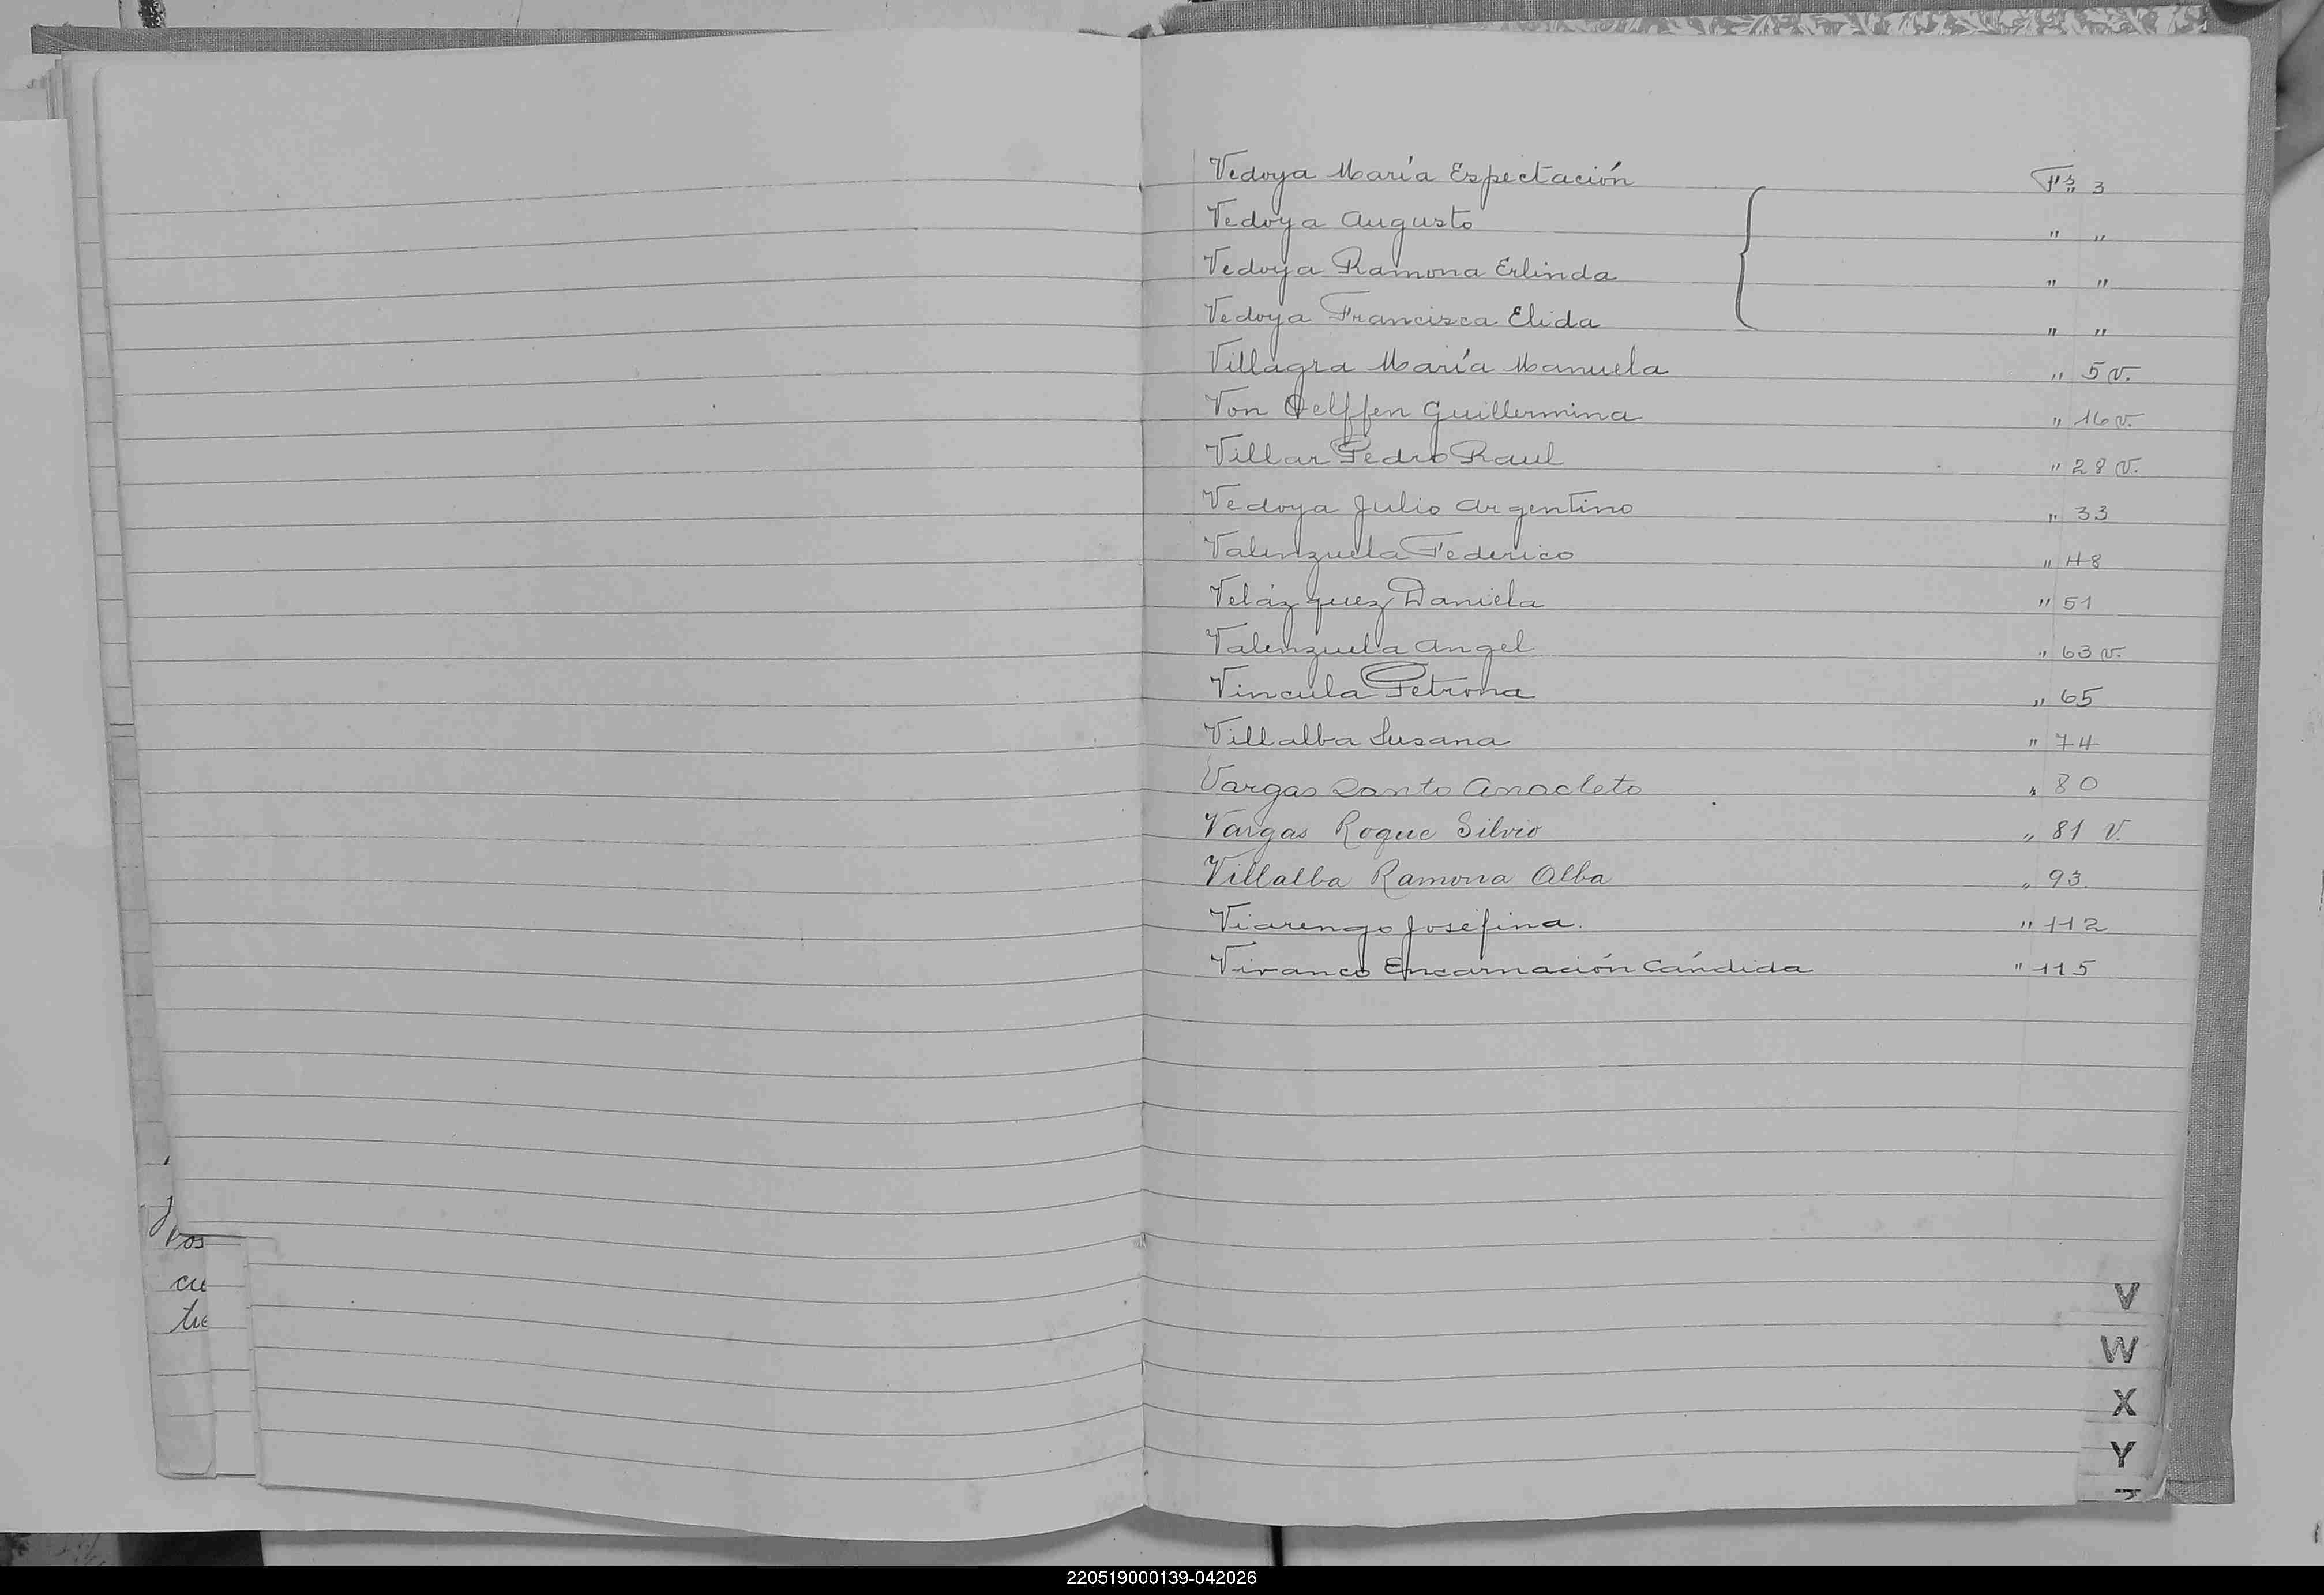 Vedoya María Espectación Fs. 3
Vedoya Augusto " "
Vedoya Ramona Erlinda " "
Vedoya Francisca Elida " "
Villagra María Manuela " 5 v.
Von Oelffen Guillermina " 16 v.
Villar Pedro Raul " 28 v.
Vedoya Julio Argentino " 33
Valenzuela Federico " 48
Velázquez Daniela " 51
Valenzuela Angel " 63 v.
Vincula Petrona " 65
Villalba Susana " 74
Vargas Santo Anacleto " 80
Vargas Roque Silvio " 81 v.
Villalba Ramona Alba " 93
Viarengo Josefina. " 112
Vivanco Encarnación Cándida " 115
cu
V
W
X
Y
220519000139-042026